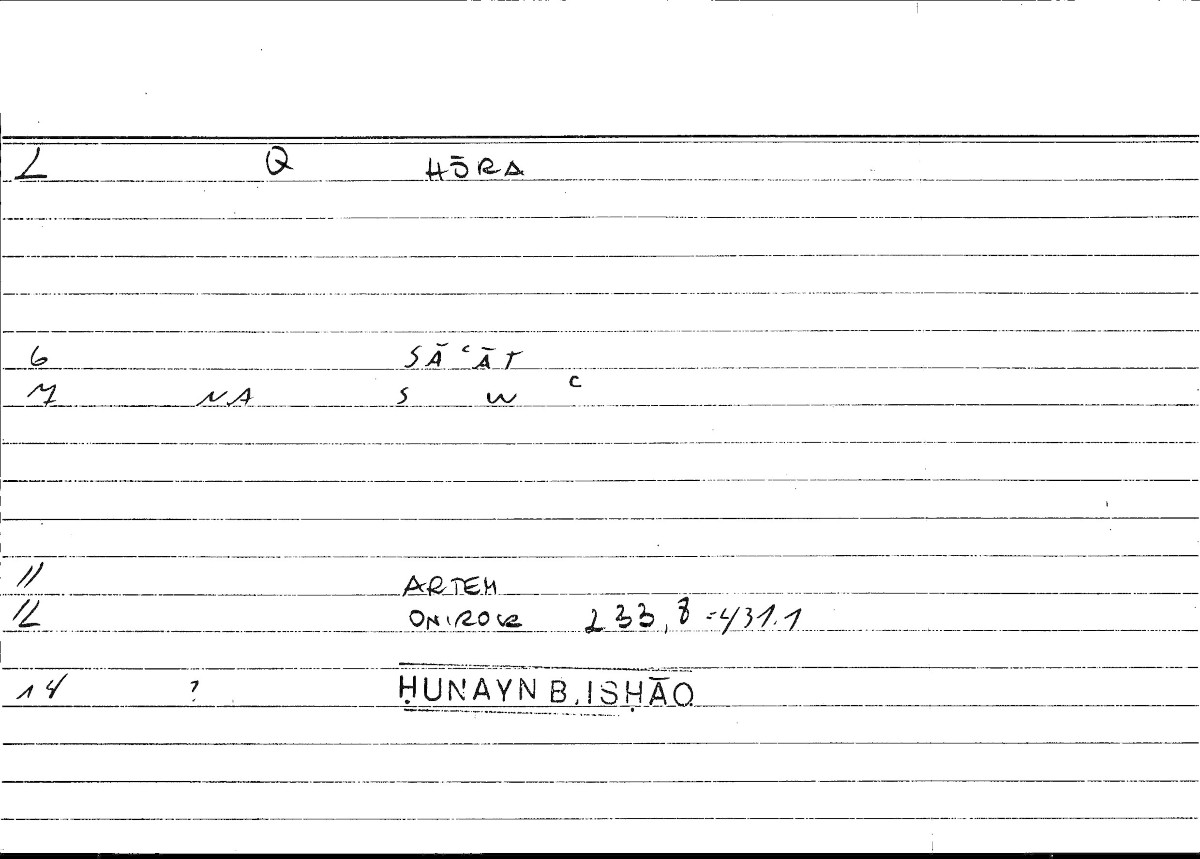 2 Q HŌRA
6 SĀʿĀT
7 NA S W ʿ
11 ARTEM
12 ONIROCR 233,8=431.1
14 ? ḤUNAYN B. ISḤĀQ